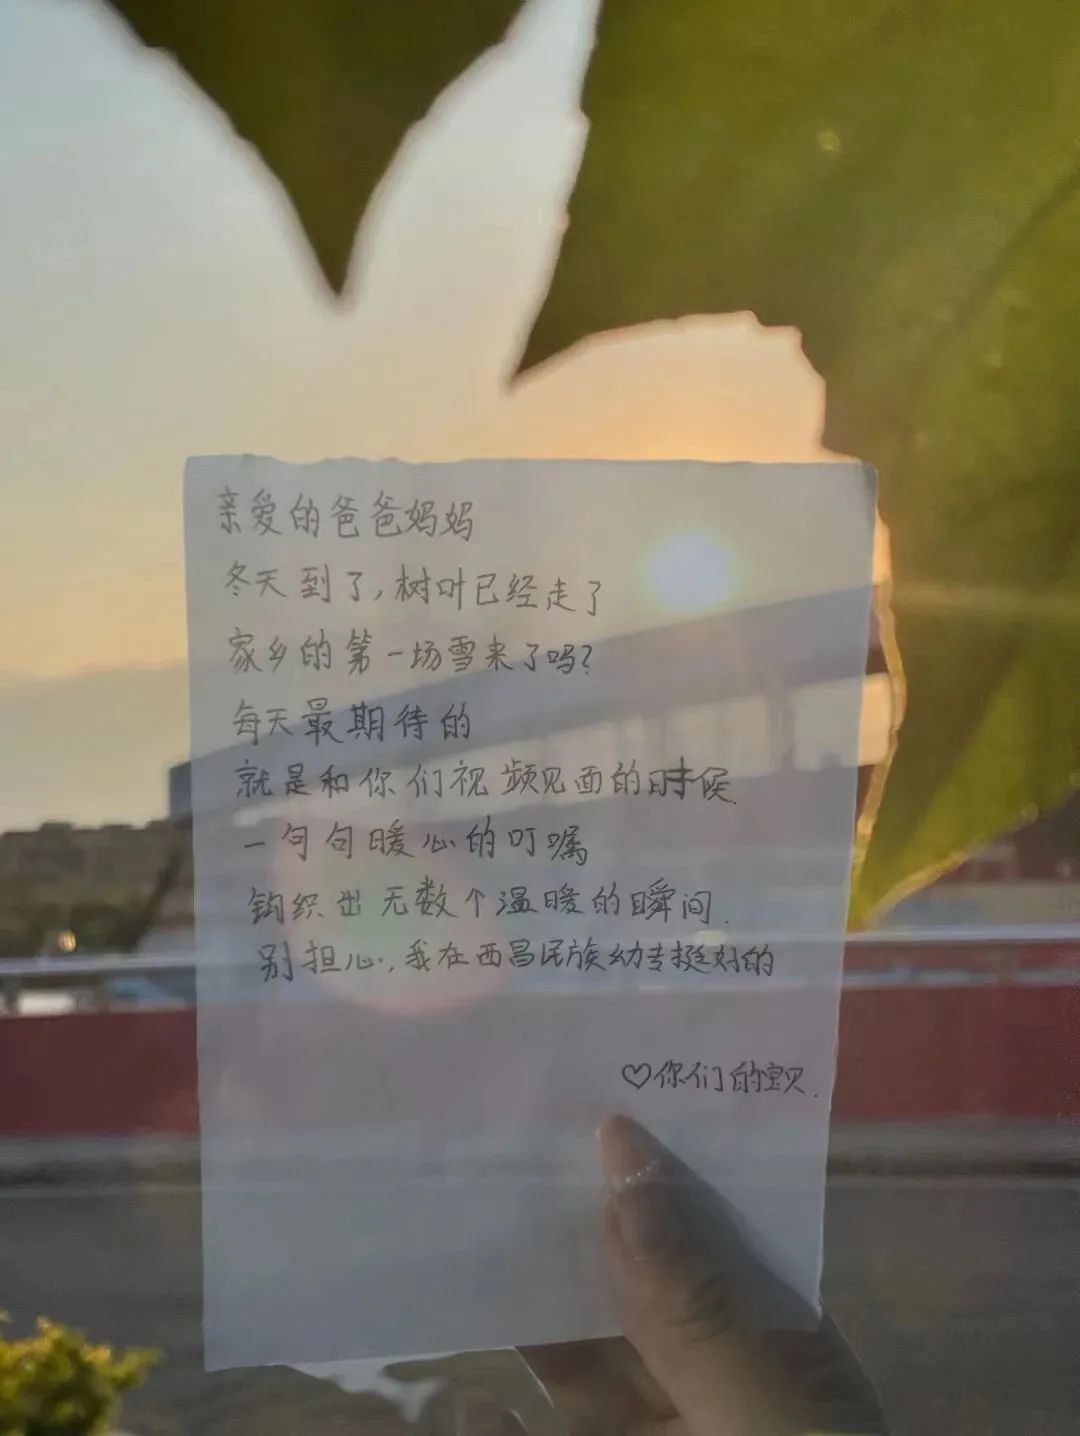 亲爱的爸爸妈妈
冬天到了,树叶已经走了
家乡的第一场雪来了吗?
每天最期待的
就是和你们视频见面的时候.
一句句暖心的叮嘱
钩织出无数个温暖的瞬间.
别担心,我在西昌民族幼专挺好的
♡你们的宝贝.